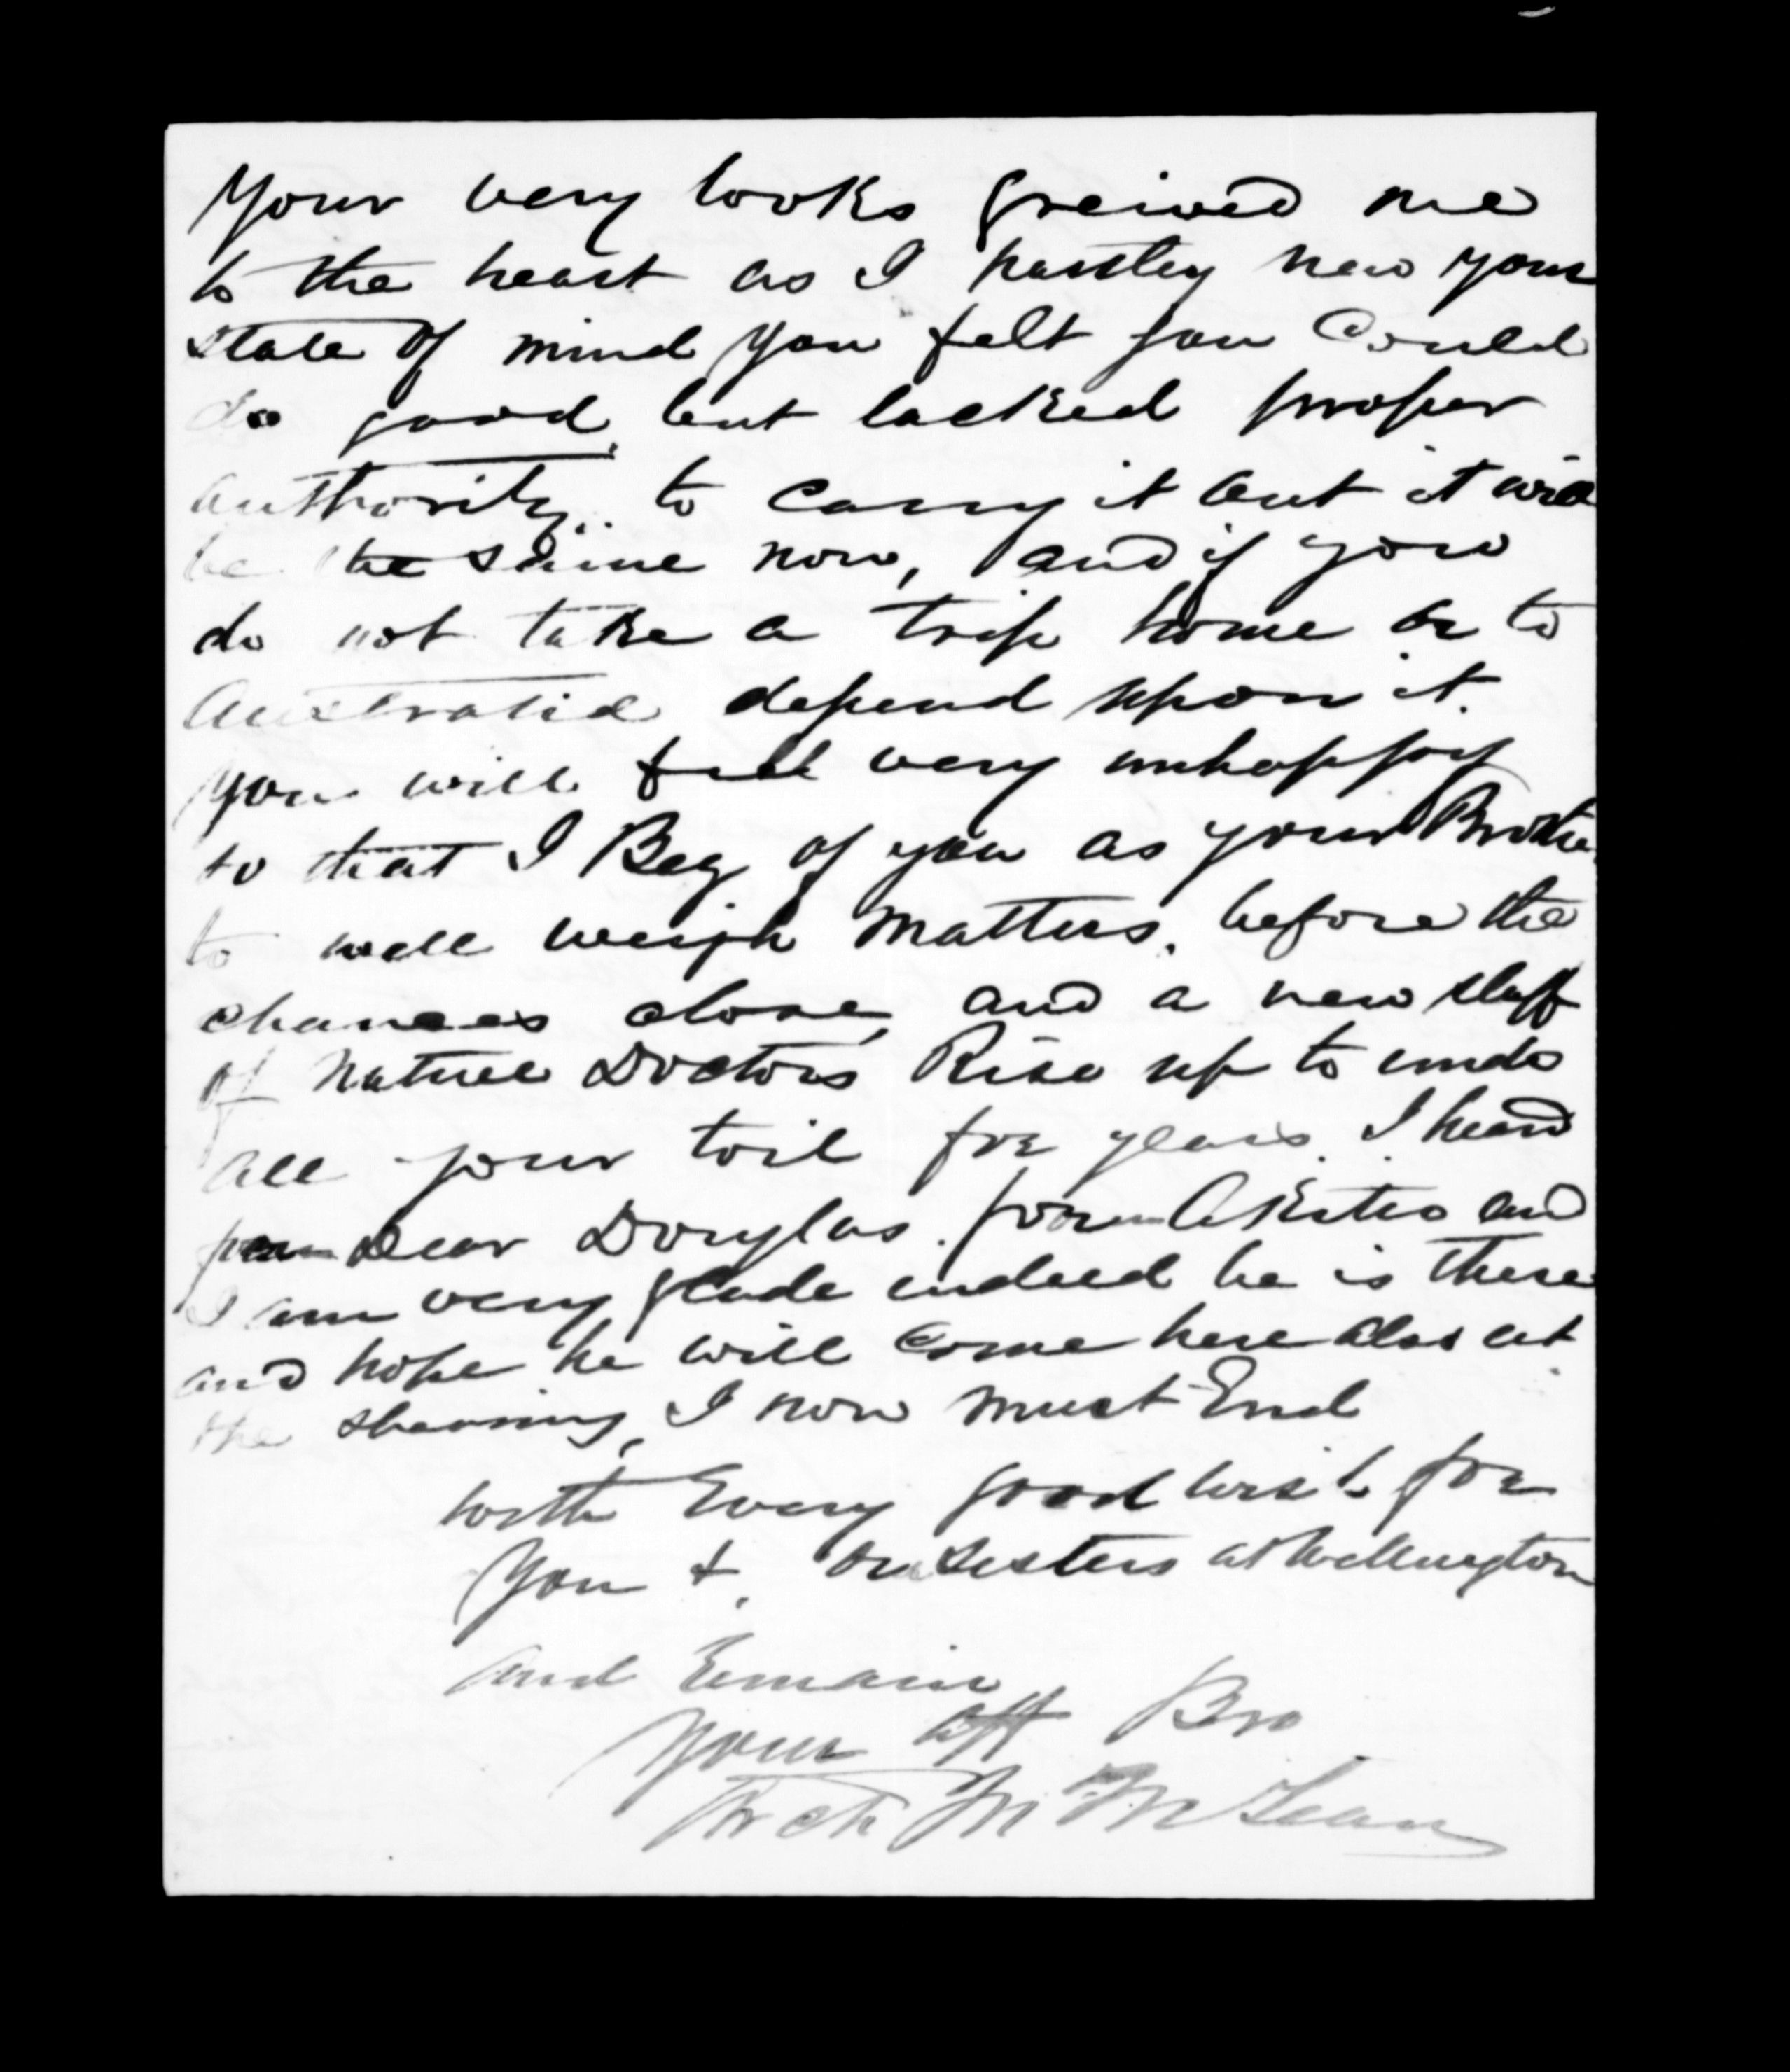 Your very looks greived me
to the heart as I hastley new your
state of mind you felt you Could
do good, but lacked proper
authority.. to carry it out it will
be the same now, and if you
do not take a trip home or to
Australia depend upon it.
you will feel very unhappy
so that I Beg of you as your Brother
to well weigh matters. before the
chances close, and a new staff
of Native Doctors Rise up to undo
all your toil for years. I heard
from Dear Douglas. from Akitio and
I am very glade indeed he is there
and hope he will Come here also at
the shearing, I now must End
with Every good wish for
you & our Sisters at Wellington
and Remain
Your aff Bro
Arch McLean